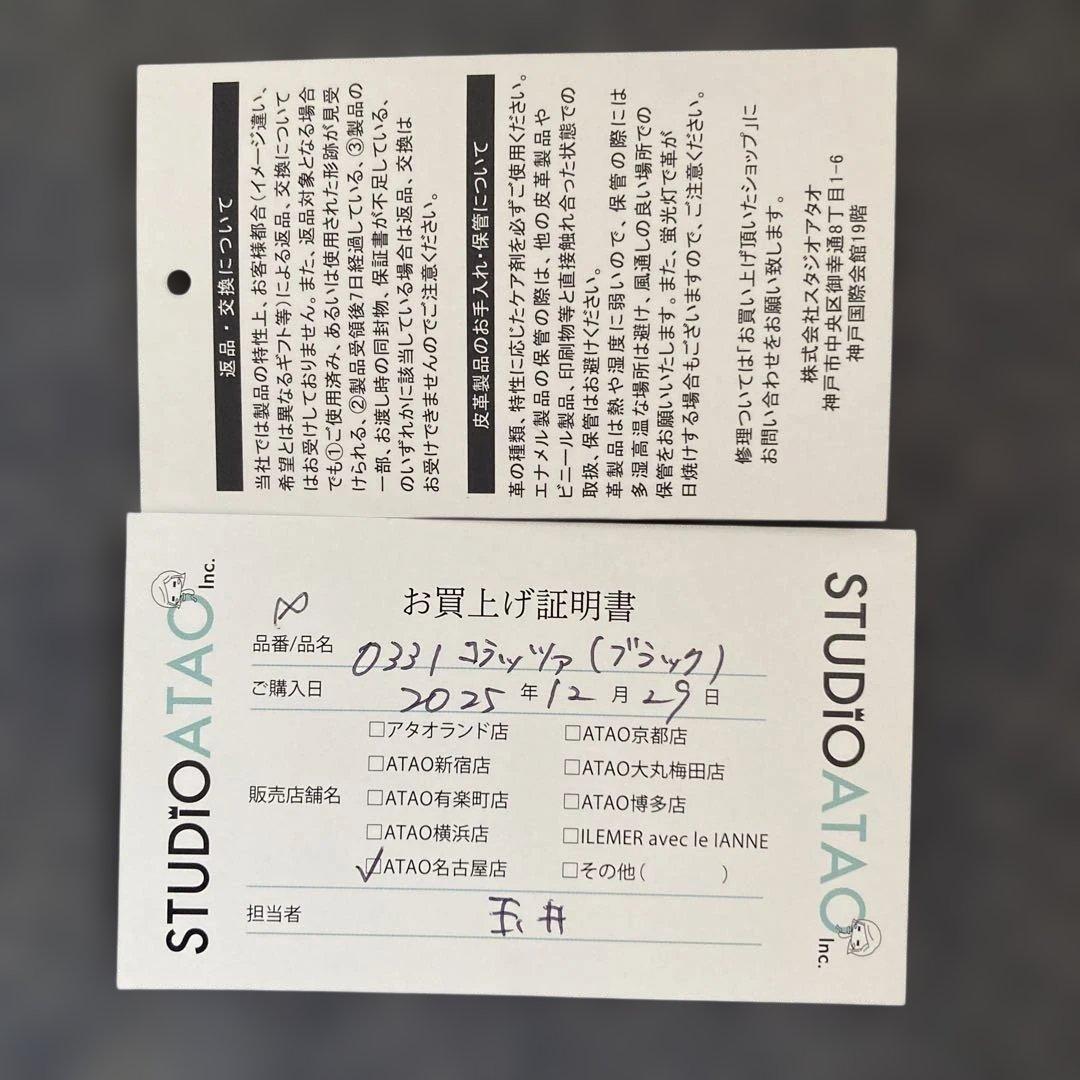 返品・交換について
当社では製品の特性上、お客様都合(イメージ違い、
希望とは異なるギフト等)による返品、交換について
はお受けしておりません。また、返品対象となる場合
でも①ご使用済み、あるいは使用された形跡が見受
けられる、②製品受領後7日経過している、③製品の
一部、お渡し時の同封物、保証書が不足している、
のいずれかに該当している場合は返品、交換は
お受けできませんのでご注意ください。
皮革製品のお手入れ・保管について
革の種類、特性に応じたケア剤を必ずご使用ください。
エナメル製品の保管の際は、他の皮革製品や
ビニール製品、印刷物等と直接触れ合った状態での
取扱、保管はお避けください。
革製品は熱や湿度に弱いので、保管の際には
多湿高温な場所は避け、風通しの良い場所での
保管をお願いいたします。また、蛍光灯で革が
日焼けする場合もございますので、ご注意ください。
修理ついては「お買い上げ頂いたショップ」に
お問い合わせをお願い致します。
株式会社スタジオアタオ
神戸市中央区御幸通8丁目1-6
神戸国際会館19階
STUDIOATAO Inc.
お買上げ証明書
品番/品名 0331 コラッツァ(ブラック)
ご購入日 2025年12月29日
販売店舗名
□アタオランド店 □ATAO京都店
□ATAO新宿店 □ATAO大丸梅田店
□ATAO有楽町店 □ATAO博多店
□ATAO横浜店 □ILEMER avec le IANNE
☑ATAO名古屋店 □その他( )
担当者 玉井
STUDIOATAO Inc.